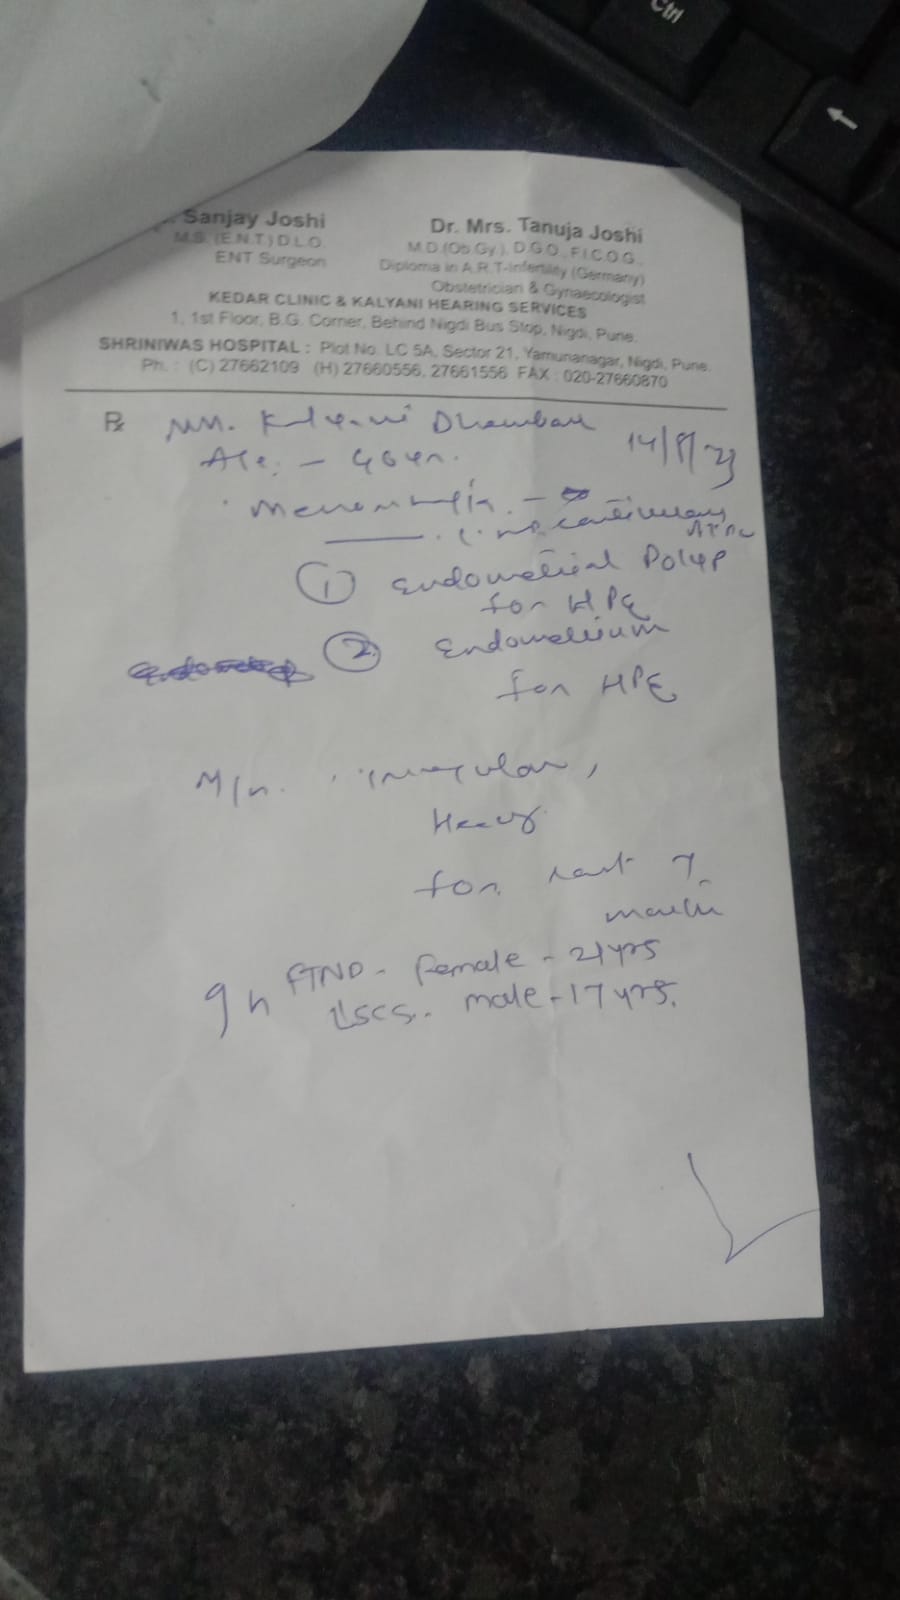 Ctrl
Sanjay Joshi
M.S. (E.N.T.) D.L.O.
ENT Surgeon
Dr. Mrs. Tanuja Joshi
M.D.(Ob.Gy.), D.G.O., F.I.C.O.G.,
Diploma in A.R.T-Infertility (Germany)
Obstetrician & Gynaecologist
KEDAR CLINIC & KALYANI HEARING SERVICES
1, 1st Floor, B.G. Corner, Behind Nigdi Bus Stop, Nigdi, Pune.
SHRINIWAS HOSPITAL : Plot No. LC 5A, Sector 21, Yamunanagar, Nigdi, Pune.
Ph. : (C) 27662109 (H) 27660556, 27661556 FAX : 020-27660870
℞
14/8/23
① Endometrial Polyp
for HPE
② Endometrium
for HPE
M/h. irregular,
Heavy
for last 7
FTND - female - 21yrs
LSCS. male - 17 yrs.